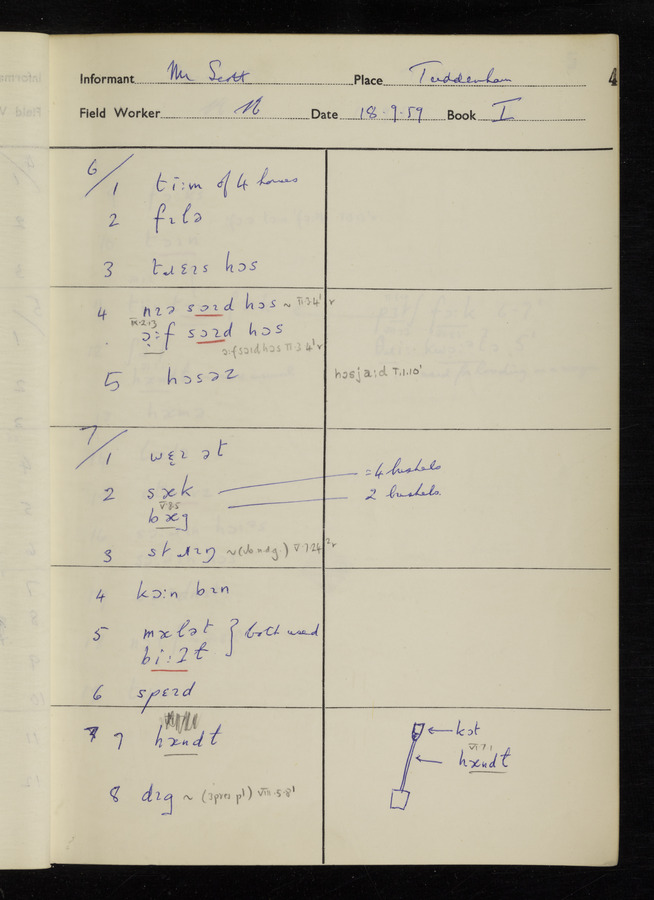 Informant Mr Scott Place Tuddenham 4
Field Worker N Date 18.9.59 Book I
6/1 tiːm of 4 horses
2 fɪlə
3 hɔs
4 nɪə sɔɪd hɔs ~ VI.3.4¹
IX.2.13
ɔːf sɔɪd hɔs
ɔːf sɔɪd hɔs VI.3.4¹
5 hɔsəz hɔsjaːd I.1.10¹
7/1 wɛɪ ət
2 sæk = 4 bushels
V.8.5
bæg 2 bushels
3 V.7.24²
4 kɔːn bɪn
5 mælət } both used
biːɪt
6 speɪd
7 7 hændt
kɔt
VI.7.1
hændt
8 dɪg ~ (3 pres pl) VIII.5.8¹